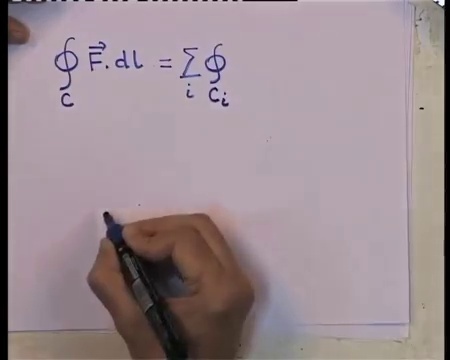 ∮_C F⃗.dl = Σ_i ∮_{C_i}